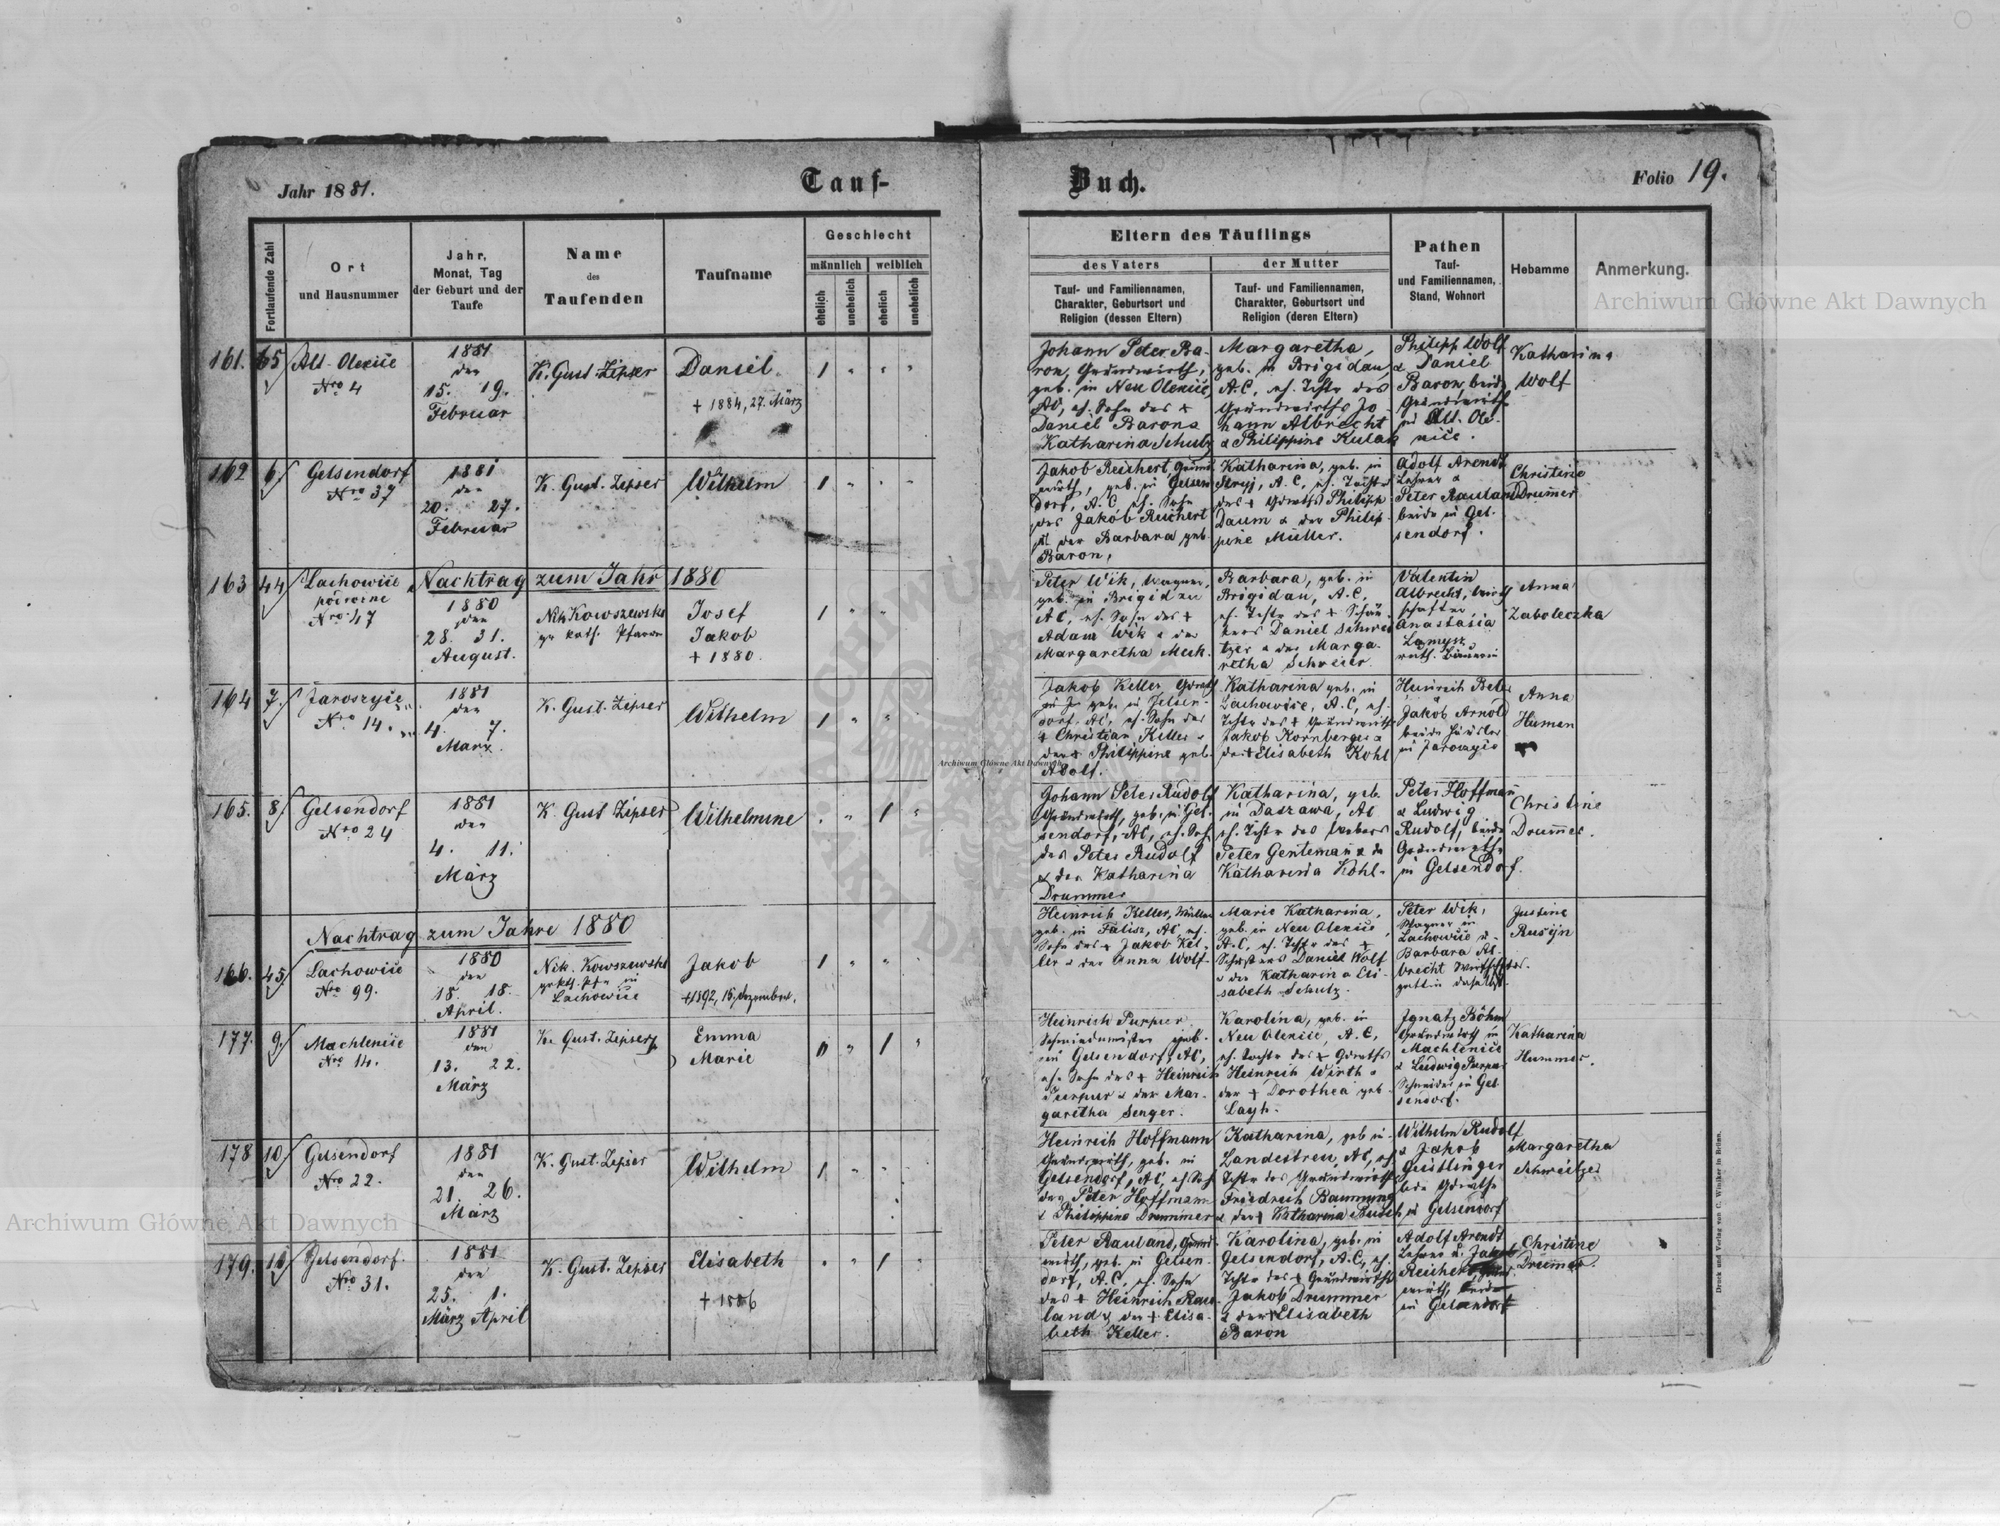 Jahr 1881.
Tauf-
Buch.
Folio 19.
Fortlaufende Zahl
Ort
und Hausnummer
Jahr,
Monat, Tag
der Geburt und der
Taufe
Name
des
Taufenden
Taufname
Geschlecht
männlich
weiblich
ehelich
unehelich
ehelich
unehelich
Eltern des Täuflings
des Vaters
Tauf- und Familiennamen,
Charakter, Geburtsort und
Religion (dessen Eltern)
der Mutter
Tauf- und Familiennamen,
Charakter, Geburtsort und
Religion (deren Eltern)
Pathen
Tauf-
und Familiennamen,
Stand, Wohnort
Hebamme
Anmerkung.
161. 65
Alt-Olexice
Nro 4
1881
den
15. 19.
Februar
K. Gust Zipser
Daniel.
+ 1884, 27. März
1 " " "
Johann Peter Ba-
ron, Grundwirth,
geb. in Neu Olexice,
AC, eh. Sohn des +
Daniel Barons
Katharina Schulz
Margaretha,
geb. in Brigidau
A.C, eh. Tchtr des
Grundwirths Jo
hann Albrecht
& Philippine Kulak
Philipp Wolf
& Daniel
Baron, beide
Grundwirthe
in Alt. Ole-
xice.
Katharina
Wolf
162 6.
Gelsendorf
Nro 37
1881
den
20. 27.
Februar
K. Gust. Zipser
Wilhelm
1 " " "
Jakob Reichert Grund
wirth, geb. in Gelsen
dorf, A.C eh. Sohn
des Jakob Reichert
u der Barbara geb.
Baron,
Katharina, geb. in
Stryj, A.C, eh. Tochter
des + Grwths Philipp
Daum & der Philip-
pine Müller.
Adolf Arendt
Lehrer &
Peter Rauland
beide in Gel-
sendorf.
Christine
Drumer
163 44
Lachowice
podrożne
Nro 17
Nachtrag zum Jahr 1880
1880
den
28. 31.
August.
Nik Kowszewski
gr kath. Pfarrer
Josef
Jakob
+ 1880.
1 " "
Peter Wik, Wagner,
geb. in Brigidau
AC, eh. Sohn des +
Adam Wik & der
Margaretha Muk.
Barbara, geb. in
Brigidau, A.C,
Daniel Schwei
tzer & der Marga-
retha Schreier
Valentin
Albrecht,
Anastasia
ruth. Bäuerin
Anna
Zaboleczka
164 7.
Jaroszyce
Nro 14.
1881
den
4. 7.
März.
K. Gust. Zipser
Wilhelm
1 " " "
Jakob Keller Grwrth
in J. geb. in Gelsen-
dorf. AC, eh. Sohn des
+ Christian Keller &
der + Philippine geb.
Adolf.
Katharina geb. in
Lachowice, A.C, eh.
Tchtr des + Grundwirth
Jakob Kornberger &
der + Elisabeth Kohl
Heinrich
Jakob Arnold
beide Häusler
in Jaroszyce
Anna
Humen
165. 8.
Gelsendorf
Nro 24
1881
den
4. 11.
März
K. Gust Zipser
Wilhelmine
. " 1 "
Johann Peter Rudolf
Grundwirth, geb. in Gel-
sendorf, AC, eh. Sohn
des Peter Rudolf
& der Katharina
Drummer
Katharina, geb.
in Daszawa, AC
eh. Tchtr des Webers
Peter Genteman & der
Katharina Kohl-
Peter Hoffman
& Ludwig
Rudolf, beide
Grundwirthe
in Gelsendorf.
Christine
Drumer.
Nachtrag zum Jahre 1880
166. 45
Lachowice
Nro 99.
1880
den
18. 18.
April.
Nik. Kowszewski
gr kth. Pfr in
Lachowice
Jakob
+1892, 15. Dezember.
1 " " "
Heinrich Keller, Müller
geb. in Falisz, AC eh.
Sohn des + Jakob Kel-
ler & der Anna Wolf.
Marie Katharina,
geb. in Neu Olexice
A.C, eh. Tchtr des +
Schusters Daniel Wolf
& der Katharina Eli-
sabeth Schutz.
Peter Wik,
Wagner in
Lachowice u.
Barbara Al-
brecht Wirthschfts-
gattin daselbst.
Justine
Rusijn
177. 9.
Machlenice
Nro 14.
1881
den
13. 22.
März
K. Gust. Zipser
Emma
Marie
" 1 "
Heinrich Purpur
Schmiedmeister geb.
in Gelsendorf, AC,
eh. Sohn des + Heinrich
Purpur & der Mar-
garetha Senger.
Karolina, geb. in
Neu Olexice, A.C,
eh. Tochtr des + Grwths
Heinrich Wirth &
der + Dorothea geb.
Layh.
Ignatz Böhm
Grundwirth in
Machlenice
& Ludwig Purpur
Schneider in Gel
sendorf.
Katharina
Hummer.
178 10
Gelsendorf
Nro 22.
1881
den
21. 26.
März
K. Gust. Zipser
Wilhelm
1 " " "
Heinrich Hoffmann
Grundwirth, geb. in
Gelsendorf, AC, eh. Sohn
des Peter Hoffmann
& Philippine Drummer
Katharina, geb in
Landestreu, AC, eh
Tchtr des Grundwirth
Friedrich Baumung
& der + Katharina Busch
Wilhelm Rudolf
& Jakob
Geistlinger
beide Grwrthe
in Gelsendorf
Margaretha
Schweitzer
179. 11
Gelsendorf.
Nro 31.
1881
den
25. 1.
März April
K. Gust. Zipser
Elisabeth
+ 1886
. " 1 "
Peter Rauland, Grund
wirth, geb. in Gelsen-
dorf, A.C, eh. Sohn
des + Heinrich Rau-
land & der + Elisa-
beth Keller.
Karolina, geb. in
Gelsendorf, A.C, eh.
Tchtr des + Grundwirths
Jakob Drummer
& der + Elisabeth
Baron
Adolf Arendt
Lehrer u. Jakob
Reichert, Grund-
wirth, beide
in Gelsendorf
Christine
Drumer.
Druck und Verlag von C. Winiker in Brünn.
Archiwum Główne Akt Dawnych
Archiwum Główne Akt Dawnych
Archiwum Główne Akt Dawnych